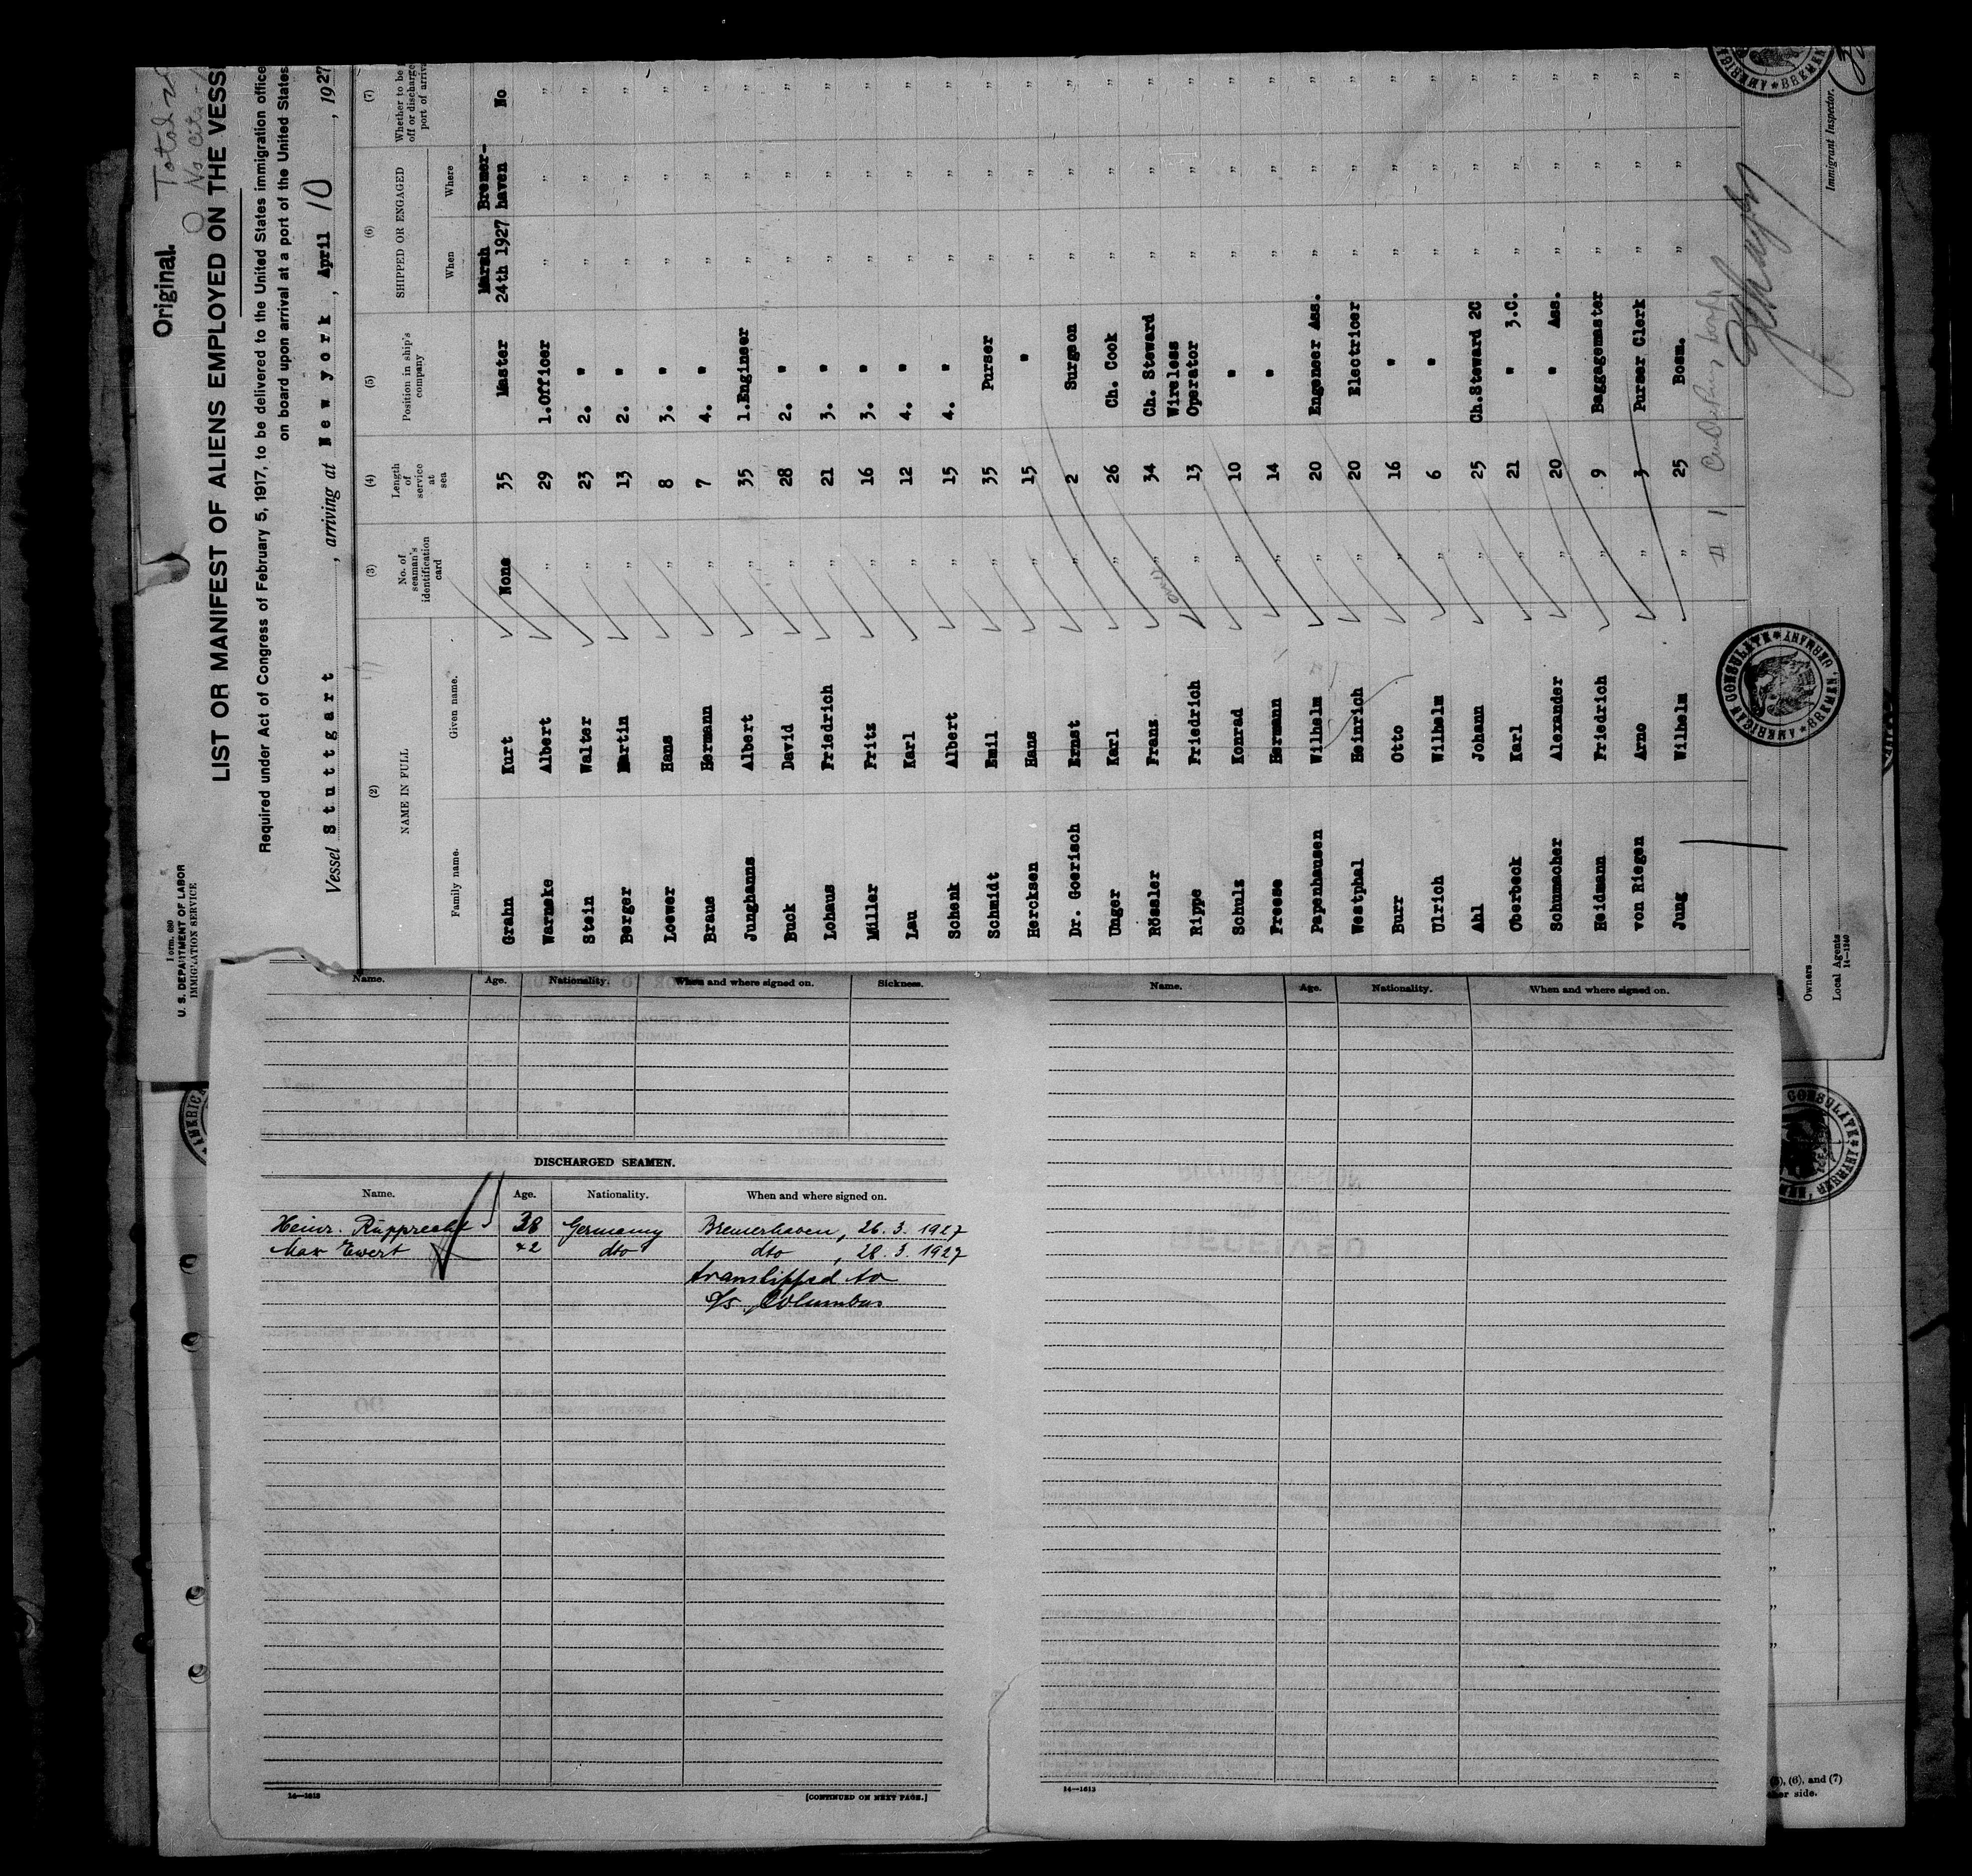 Original.
Form 689
U. S. DEPARTMENT OF LABOR
IMMIGRATION SERVICE
LIST OR MANIFEST OF ALIENS EMPLOYED ON THE VESS
Required under Act of Congress of February 5, 1917, to be delivered to the United States immigration office
on board upon arrival at a port of the United States
Vessel Stuttgart , arriving at New york , April 10 , 1927
(2) (3) (4) (5) (6) (7)
NAME IN FULL No. of seaman's identification card Length of service at sea Position in ship's company SHIPPED OR ENGAGED Whether to be off or discharge port of arriva
Family name. Given name. When Where
Grahn Kurt None 35 Master Marsh 24th 1927 Bremer-haven No
Warneke Albert " 29 1.Officer " " "
Stein Walter " 23 2. " " " "
Berger Martin " 13 2. " " " "
Loewer Hans " 8 3. " " " "
Braus Hermann " 7 4. " " " "
Junghanns Albert " 35 1.Engineer " " "
Buck David " 28 2. " " " "
Lohaus Friedrich " 21 3. " " " "
Müller Fritz " 16 3. " " " "
Lau Karl " 12 4. " " " "
Schenk Albert " 15 4. " " " "
Schmidt Emil " 35 Purser " " "
Hercksen Hans " 15 " " " "
Dr. Goerisch Ernst " 2 Surgeon " " "
Unger Karl " 26 Ch. Cook " " "
Rössler Franz " 34 Ch. Steward " " "
Rippe Friedrich " 13 Wireless Operator " " "
Schulz Konrad " 10 " " " "
Freese Hermann " 14 " " " "
Papenhausen Wilhelm " 20 Engeneer Ass. " " "
Westphal Heinrich " 20 Electricer " " "
Burr Otto " 16 " " " "
Ulrich Wilhelm " 6 " " " "
Ahl Johann " 25 Ch.Steward 2C " " "
Oberbeck Karl " 21 " 3.C. " " "
Schumacher Alexander " 20 " Ass. " " "
Heidmann Friedrich " 9 Baggagemaster " " "
von Riegen Arno " 3 Purser Clerk " " "
Jung Wilhelm " 25 Bosm. " " "
Owners
Local Agents
14—1240
Immigrant Inspector.
AMERICAN CONSULATE
BREMEN, GERMANY
Name. Age. Nationality. When and where signed on. Sickness.
DISCHARGED SEAMEN.
Name. Age. Nationality. When and where signed on.
Heinr. Rupprecht 38 Germany Bremerhaven, 26. 3. 1927
Max Ewert 42 dto dto , 28. 3. 1927
transhippd to
s/s Columbus
14—1613
[CONTINUED ON NEXT PAGE.]
Name. Age. Nationality. When and where signed on.
14—1613
(5), (6), and (7)
other side.